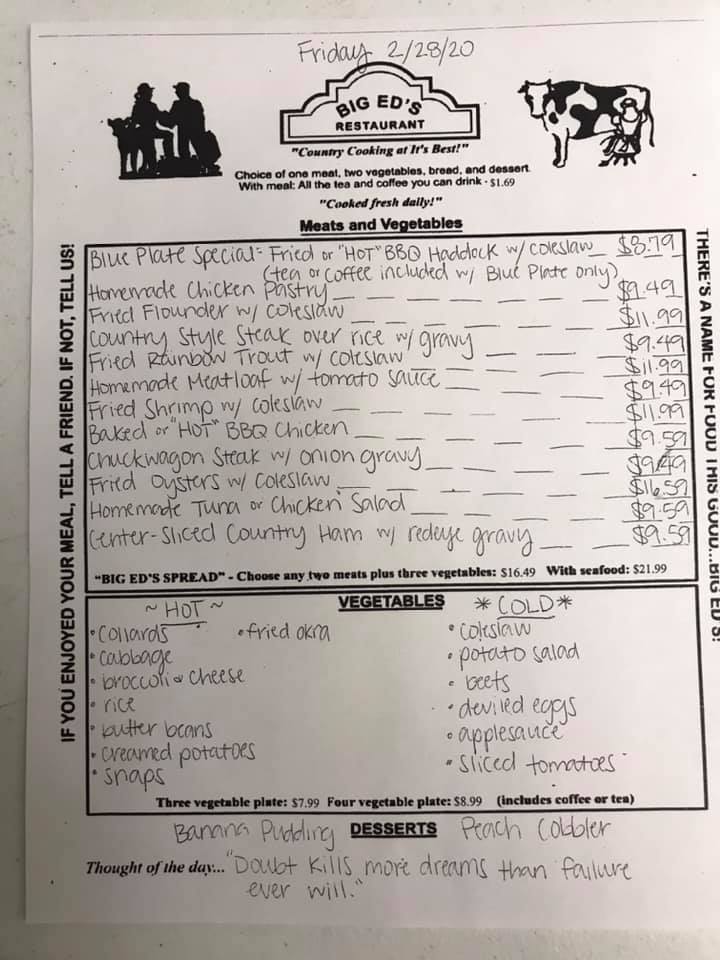 Friday 2/28/20
BIG ED'S
RESTAURANT
"Country Cooking at It's Best!"
Choice of one meat, two vegetables, bread, and dessert
With meal: All the tea and coffee you can drink - $1.69
"Cooked fresh daily!"
Meats and Vegetables
Blue Plate Special- Fried or "HOT" BBQ Haddock w/ coleslaw $8.79
(tea or coffee included w/ Blue Plate only)
Homemade Chicken Pastry $9.49
Fried Flounder w/ coleslaw $11.99
Country Style Steak over rice w/ gravy $9.49
Fried Rainbow Trout w/ coleslaw $11.99
Homemade Meatloaf w/ tomato sauce $9.49
Fried Shrimp w/ coleslaw $11.99
Baked or "HOT" BBQ Chicken $9.59
Chuckwagon Steak w/ onion gravy $9.49
Fried Oysters w/ coleslaw $16.59
Homemade Tuna or Chicken Salad $9.59
Center-Sliced Country Ham w/ redeye gravy $9.59
"BIG ED'S SPREAD" - Choose any two meats plus three vegetables: $16.49 With seafood: $21.99
IF YOU ENJOYED YOUR MEAL, TELL A FRIEND. IF NOT, TELL US!
THERE'S A NAME FOR FOOD THIS GOOD...BIG ED'S!
VEGETABLES
~ HOT ~
• collards
• cabbage
• broccoli & cheese
• rice
• butter beans
• creamed potatoes
• snaps
• fried okra
* COLD *
• coleslaw
• potato salad
• beets
• deviled eggs
• applesauce
• sliced tomatoes
Three vegetable plate: $7.99 Four vegetable plate: $8.99 (includes coffee or tea)
Banana Pudding DESSERTS Peach Cobbler
Thought of the day... "Doubt kills more dreams than failure
ever will."